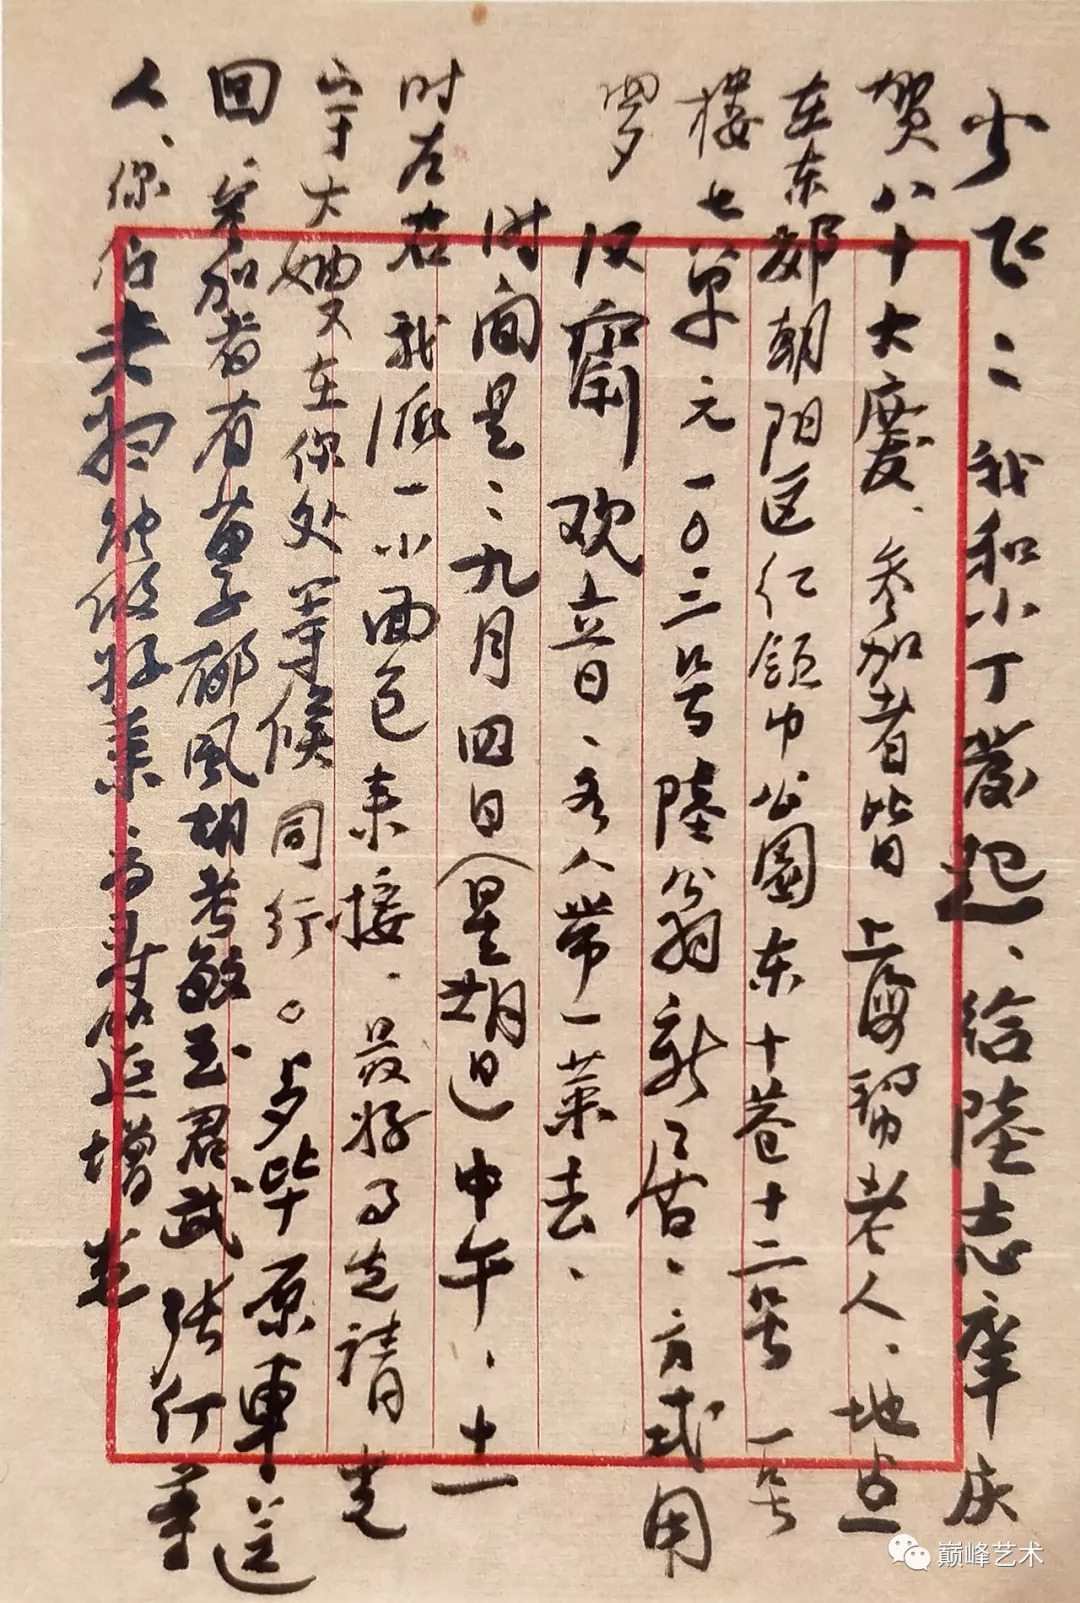 少飞：我和小丁发起、给陸志庠庆
贺八十大慶、参加者皆上海帮老人、地点
在东郊朝阳区红领巾公園东十巷十二号一号
楼七单元一〇三号陸公翁新居、方式用
罗汉斋欢立日、各人带一菜去、
时间是：九月四日（星期日）中午、十一
时左右我派一小面包来接、最好事先請董
大嫂在你处等候同行。与毕原車送
回、参加者有苗子郁風胡考敏玉君武張仃等
人、你伯老揚能做好菜、为寿筵增光
巅峰艺术